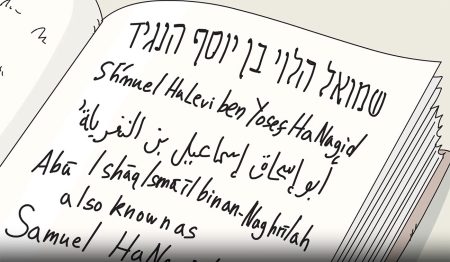 שמואל הלוי בן יוסף הנגיד
Sh'muel HaLevi ben Yosef HaNagid
أبو إسحاق إسماعيل بن النغريلة
Abū Ishāq Ismāīl bin an-Naghrīlah
also known as
Samuel